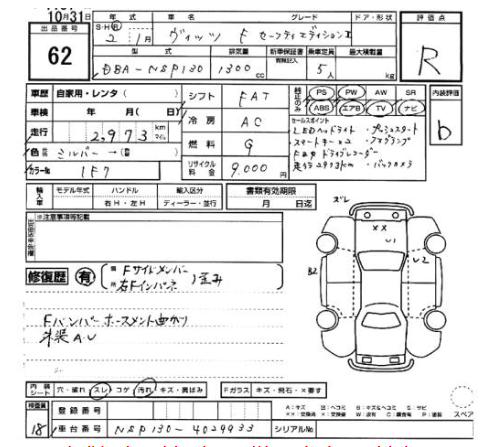 10月31日
年式 車名 グレード ドア・形状 評価点
出品番号
62
S・H・R 2年 1月 ヴィッツ F セーフティエディションⅡ
R
型式 排気量 新車保証書 乗車定員 最大積載量
DBA-NSP130 1300 cc 5人 kg
車歴 自家用・レンタ( )
シフト FAT
純正のみ PS PW AW SR
ABS エアB TV ナビ
内装評価
b
車検 年 月( 日)
冷房 AC
セールスポイント
LEDヘッドライト・プッシュスタート
スマートキー×2・フォグランプ
走行 2,973 km マイル
燃料 G
ドライブレコーダー
走行2973km・バックカメラ
色 シルバー→( 替)
カラーNo 1F7
リサイクル料金 9,000円
輸入車 モデル年式 ハンドル 輸入区分
年 右H・左H ディーラー・並行
書類有効期限
月 日迄
※注意事項等記載
ズレ
XX
U1
U2
B2
修復歴 有
Fサイドメンバー
右Fインパネ
歪み
Fバンパーホースメント曲がり
外装A・U
内装シート 穴・破れ スレ コゲ 汚れ キズ・黒ばみ
Fガラス キズ・飛石・×要す
検査員
18
登録番号
車台番号 NSP130-4029933 シリアルNo
A:キズ U:ヘコミ B:キズ&ヘコミ S:サビ
XX:交換済 X:交換要 W:波有 C:腐食有 P:塗装
スペア